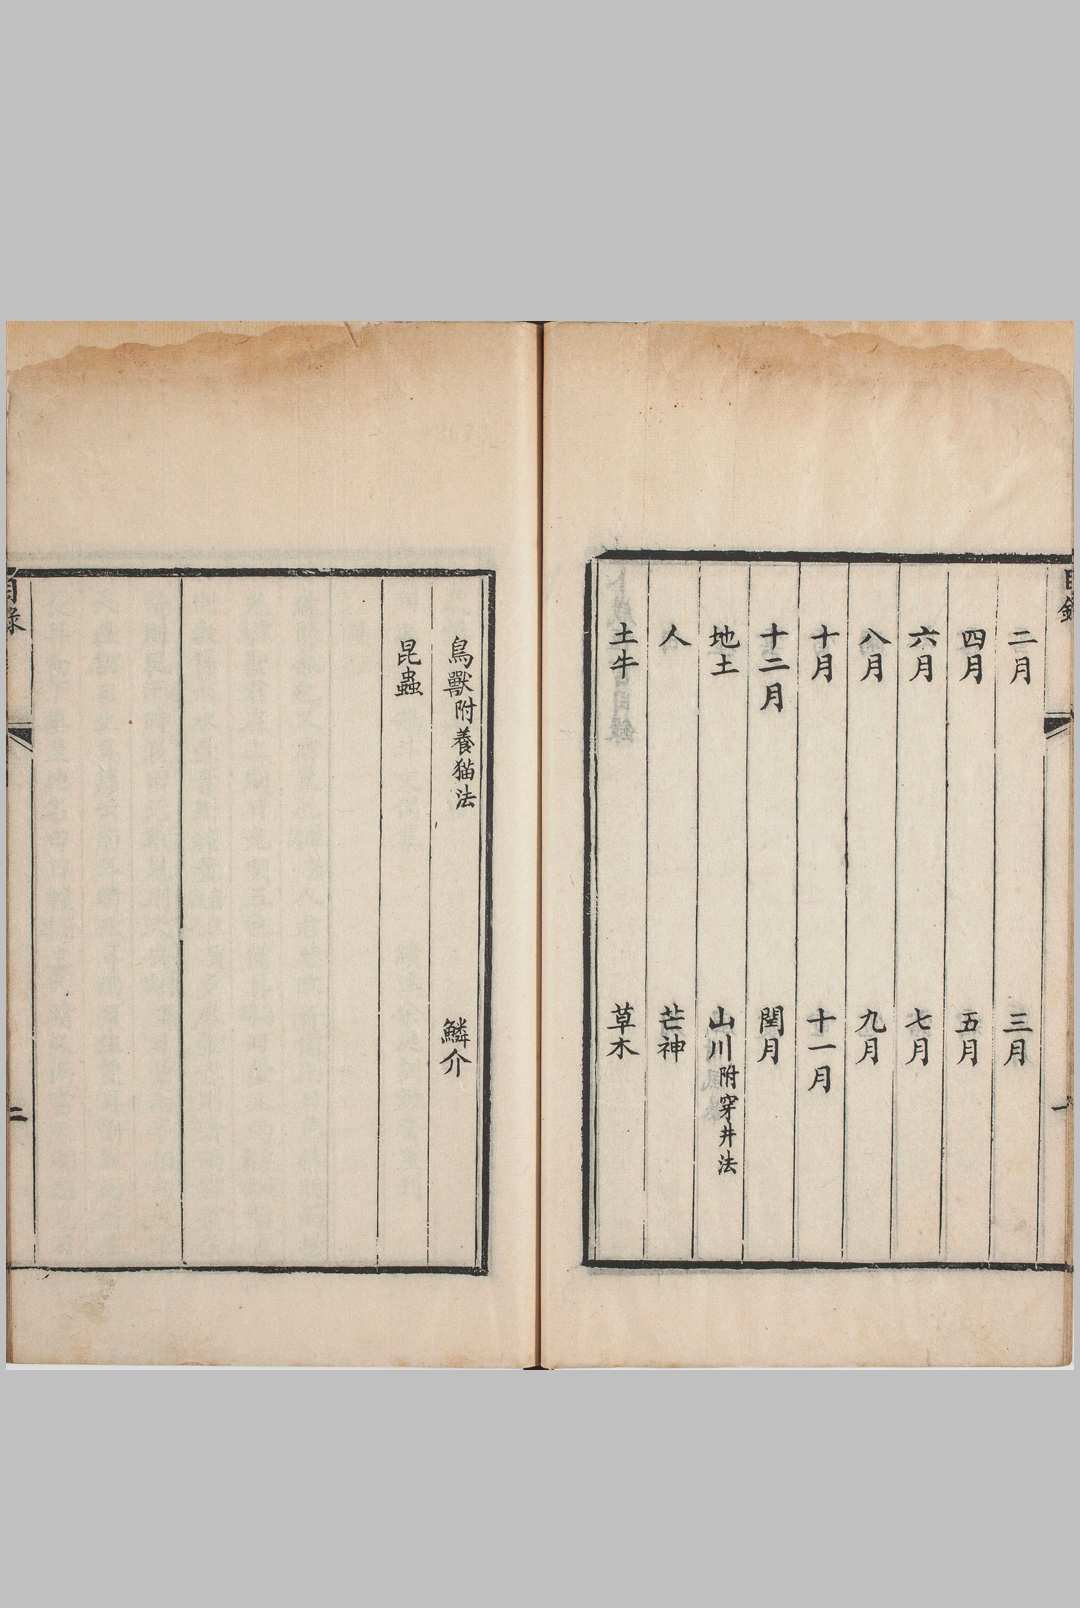 二月　三月
四月　五月
六月　七月
八月　九月
十月　十一月
十二月　閏月
地土　山川附穿井法
人　芒神
土牛　草木
目錄　一
鳥獸附養猫法　鱗介
昆蟲
目錄　二